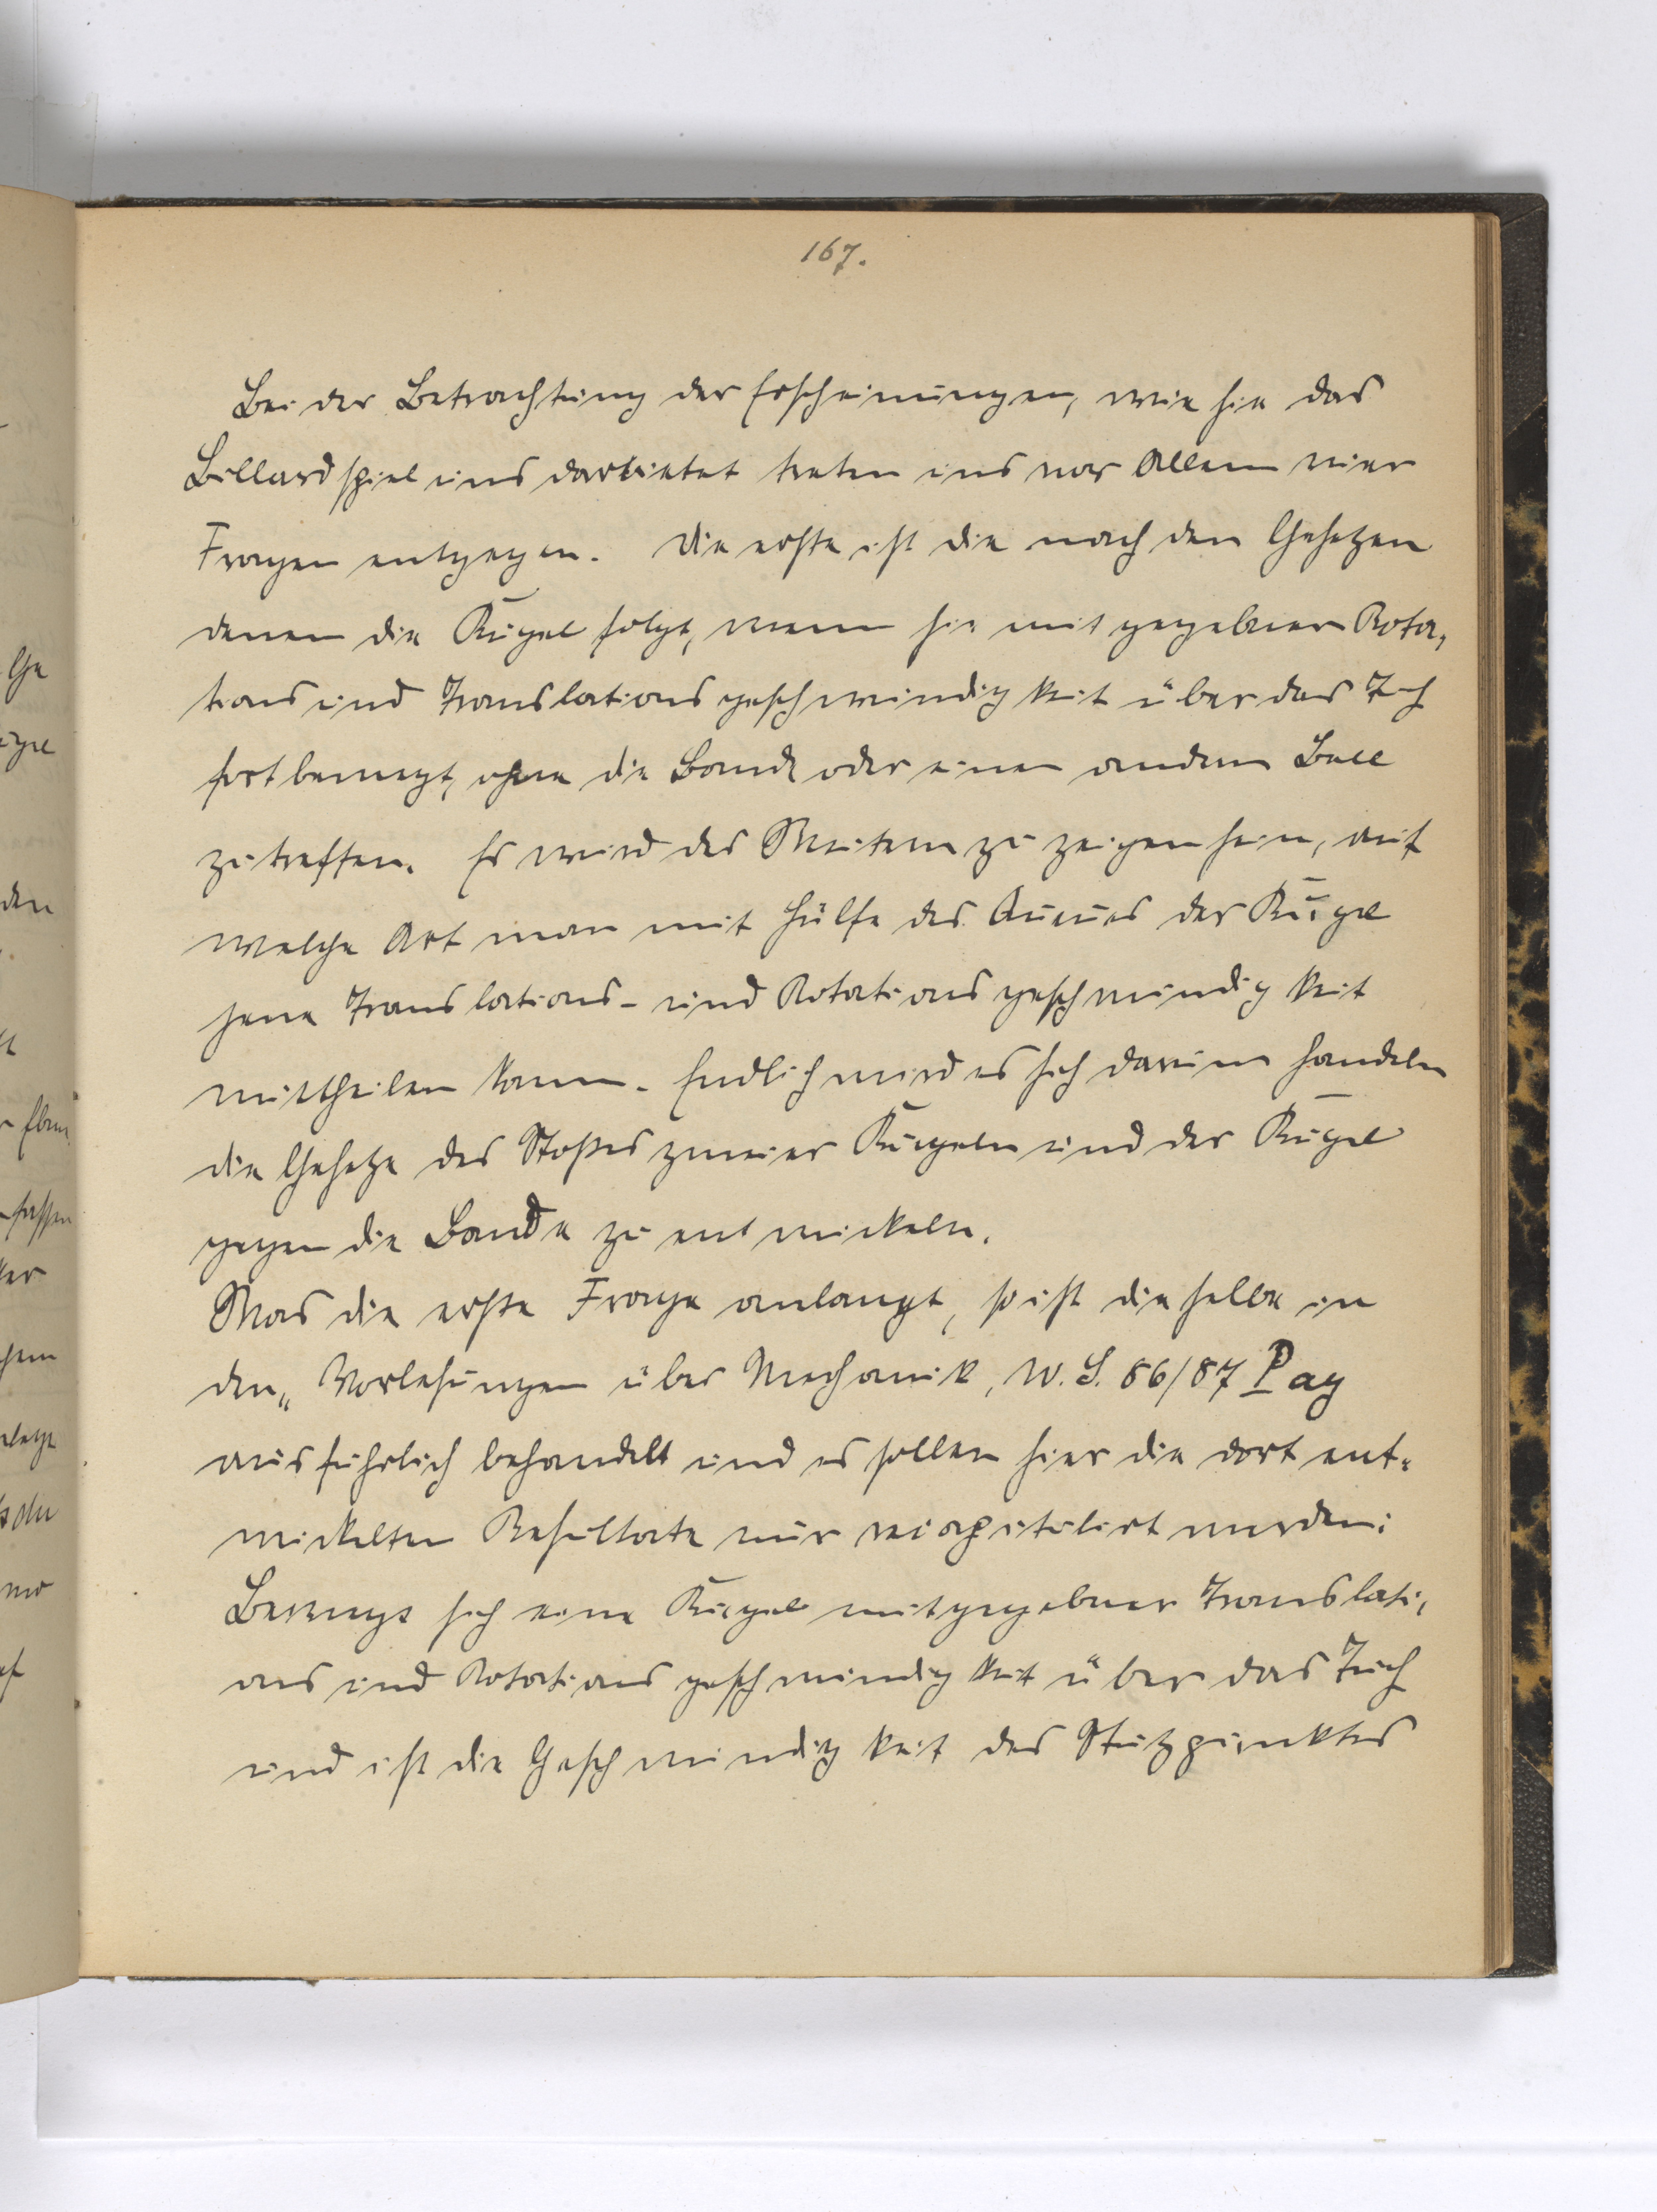 167.
Bei der Betrachtung der Erscheinungen, wie sie das
Billardspiel uns darbietet treten uns vor Allem vier
Fragen entgegen. Die erste ist die nach den Gesetzen
denen die Kugel folgt, wenn sie mit gegebener Rota-
tions und Translationsgeschwindigkeit über das Tuch
fortbewegt, ohne die Bande oder einen andern Ball
zu treffen. Es wird des Weitern zu zeigen sein, auf
welche Art man mit Hülfe des Queues der Kugel
jene Translations- und Rotationsgeschwindigkeit
mittheilen kann. Endlich wird es sich darum handeln
die Gesetze des Stoßes zweier Kugeln und der Kugel
gegen die Bande zu entwickeln.
Was die erste Frage anlangt, so ist dieselbe in
den „Vorlesungen über Mechanik, W. S. 86/87 Pag
ausführlich behandelt und es sollen hier die dort ent-
wickelten Resultate nur recapitulirt werden:
Bewegt sich eine Kugel mit gegebener Translati-
ons und Rotationsgeschwindigkeit über das Tuch
und ist die Geschwindigkeit des Stützpunktes